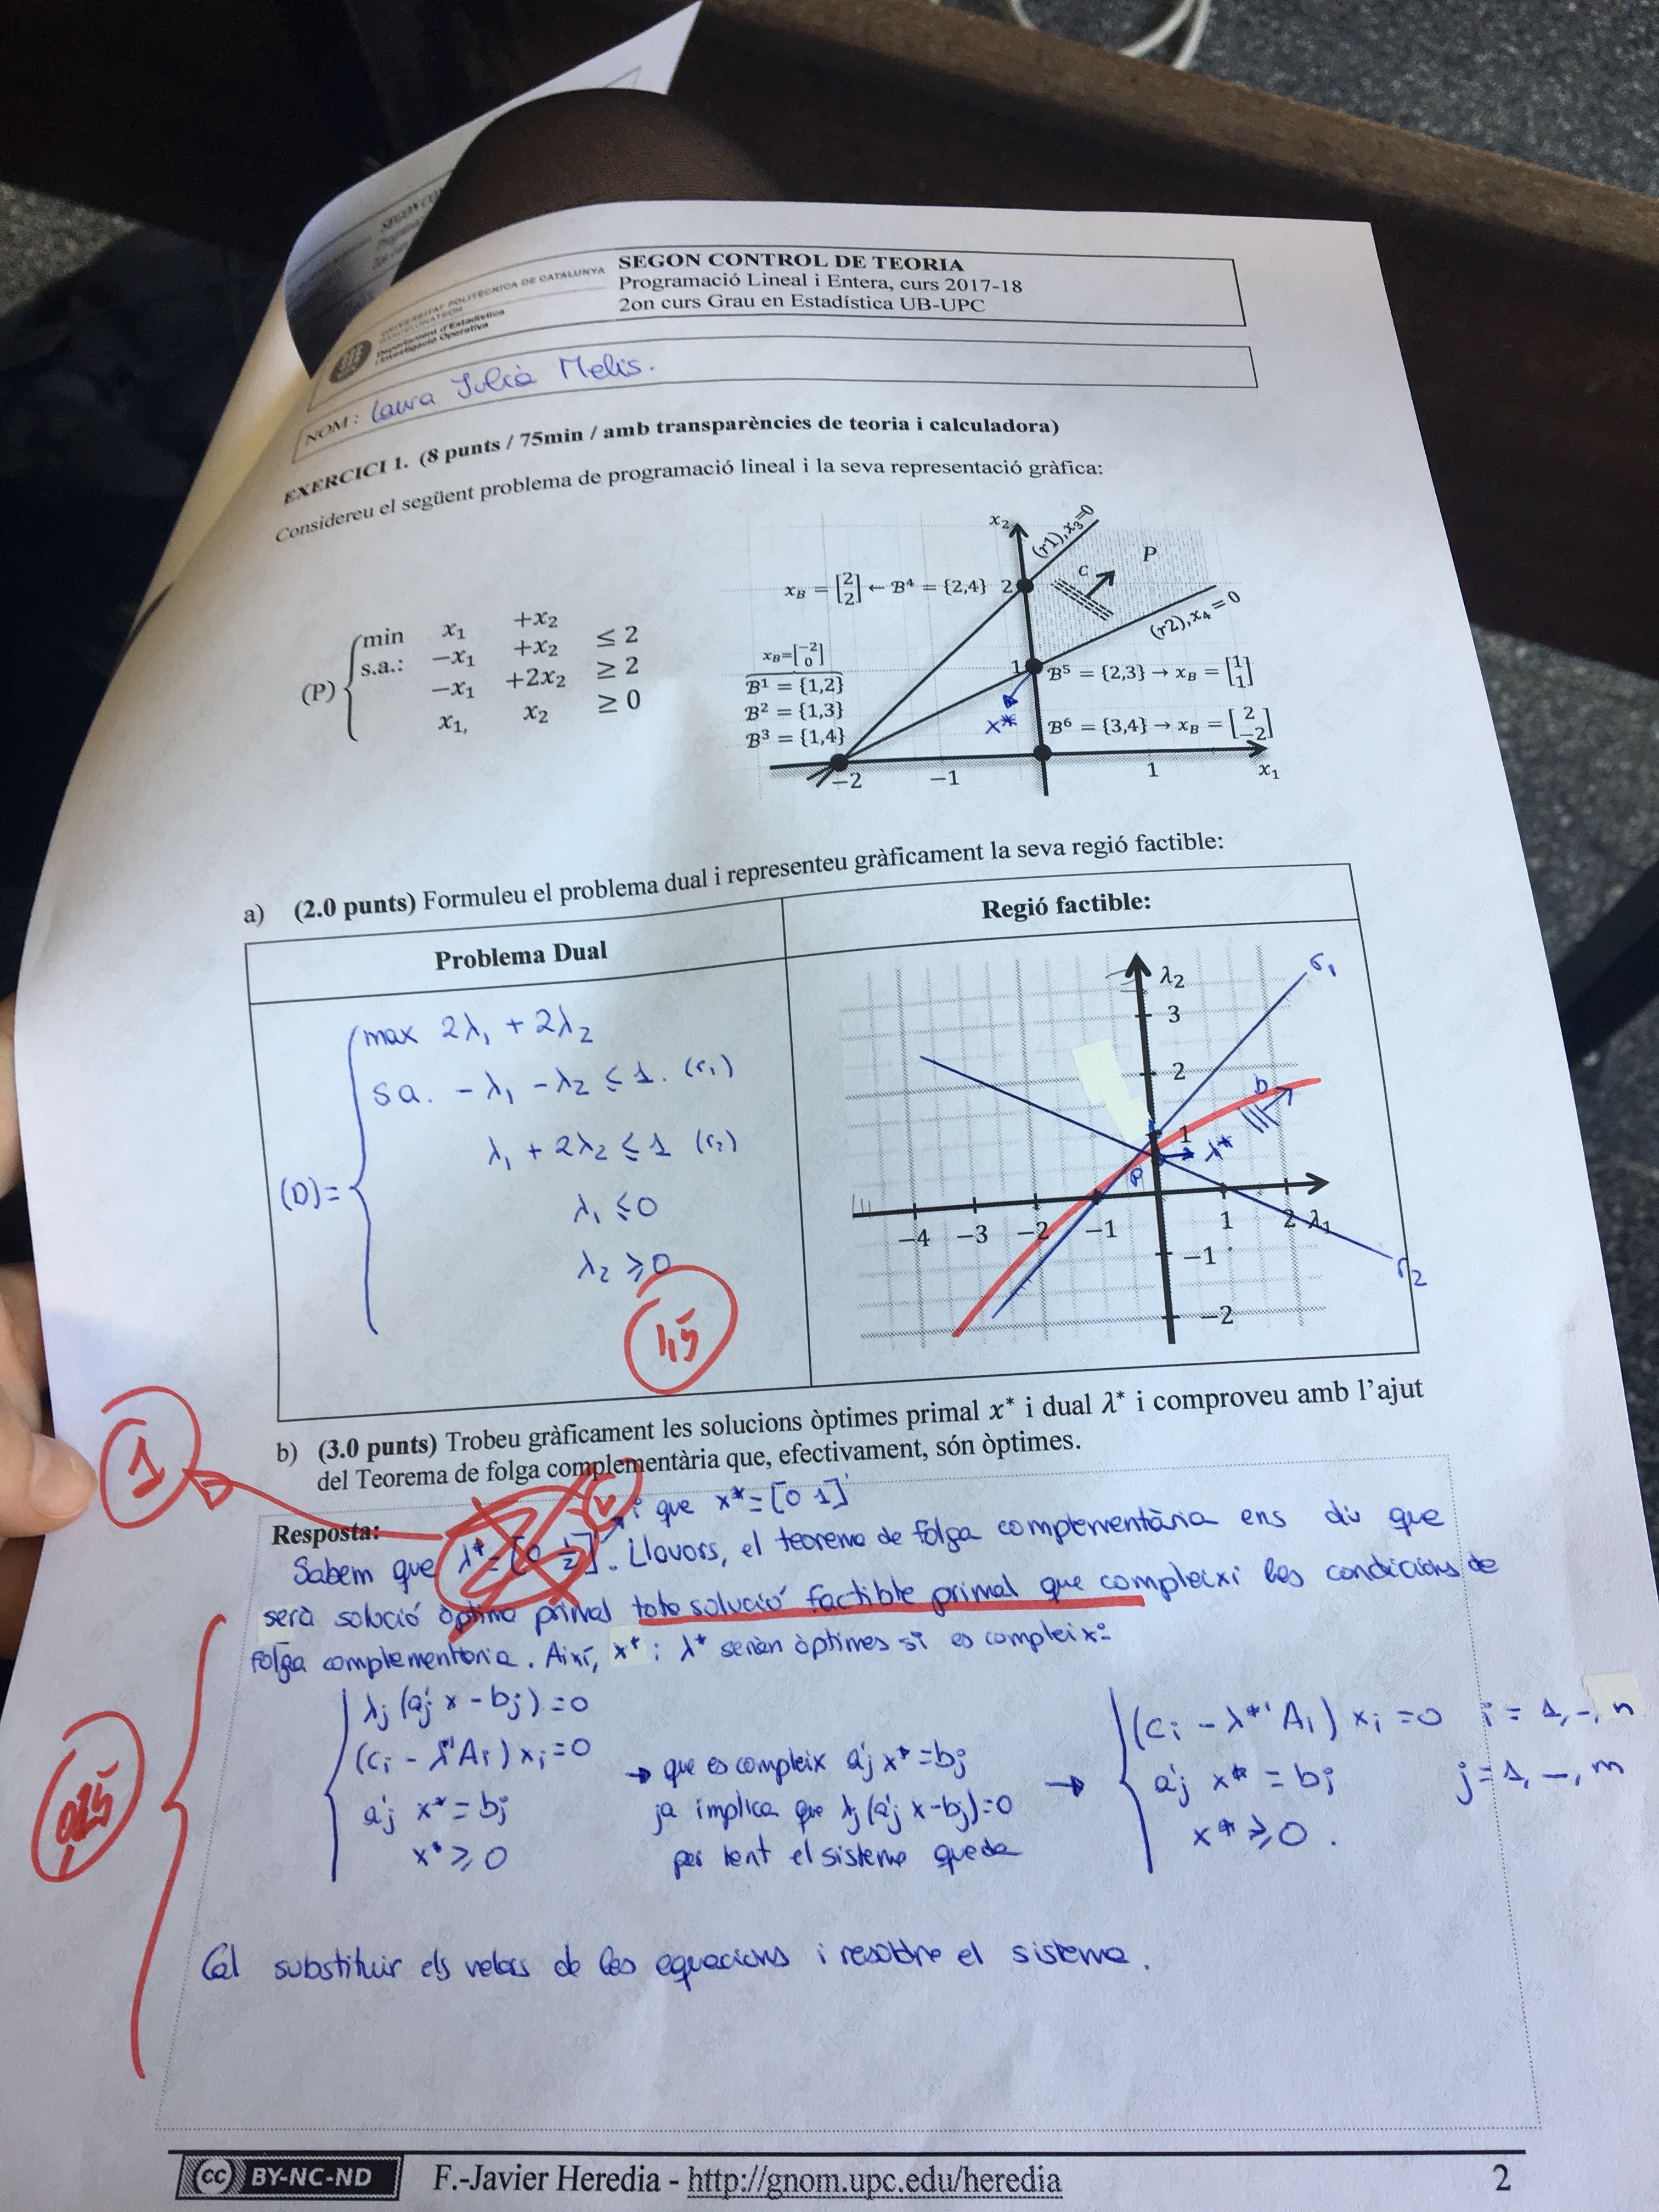 SEGON CONTROL DE TEORIA
Programació Lineal i Entera, curs 2017-18
2on curs Grau en Estadística UB-UPC
UNIVERSITAT POLITÈCNICA DE CATALUNYA
BARCELONATECH
Departament d'Estadística
i Investigació Operativa
NOM: Laura Julià Melis.
EXERCICI 1. (8 punts / 75min / amb transparències de teoria i calculadora)
Considereu el següent problema de programació lineal i la seva representació gràfica:
(P) { min x₁ +x₂
s.a.: −x₁ +x₂ ≤ 2
−x₁ +2x₂ ≥ 2
x₁, x₂ ≥ 0
x₂
(r1),x₃=0
P
c
x_B = [2 2] ← B⁴ = {2,4} 2
(r2),x₄ = 0
x_B=[−2 0]
B¹ = {1,2}
B² = {1,3}
B³ = {1,4}
1 B⁵ = {2,3} → x_B = [1 1]
x*
B⁶ = {3,4} → x_B = [2 −2]
−2 −1 1 x₁
a) (2.0 punts) Formuleu el problema dual i representeu gràficament la seva regió factible:
Problema Dual
Regió factible:
(D)= { max 2λ₁ + 2λ₂
s.a. -λ₁ - λ₂ ≤ 1. (r₁)
λ₁ + 2λ₂ ≤ 1 (r₂)
λ₁ ≤ 0
λ₂ ≥ 0
1,5
λ₂
r₁
3
2
b
1
λ*
−4 −3 −2 −1 1 2 λ₁
−1
r₂
−2
b) (3.0 punts) Trobeu gràficament les solucions òptimes primal x* i dual λ* i comproveu amb l'ajut
del Teorema de folga complementària que, efectivament, són òptimes.
1
Resposta:
i que x* = [0 1]'
Sabem que λ* = [0 ½]. Llavors, el teorema de folga complementària ens diu que
serà solució òptima primal tota solució factible primal que compleixi les condicions de
folga complementària. Així, x* i λ* seràn òptimes si es compleix:
λj (a'j x - bj) = 0
(ci - λ'Ai) xi = 0
a'j x* = bj
x* ≥ 0
→ que es compleix a'j x* = bj
ja implica que λj (a'j x - bj) = 0
per tant el sistema queda
→ (ci - λ*'Ai) xi = 0 i = 1, -, n
a'j x* = bj j = 1, -, m
x* ≥ 0.
Cal substituir els valors de les equacions i resoldre el sistema.
CC BY-NC-ND
F.-Javier Heredia - http://gnom.upc.edu/heredia
2